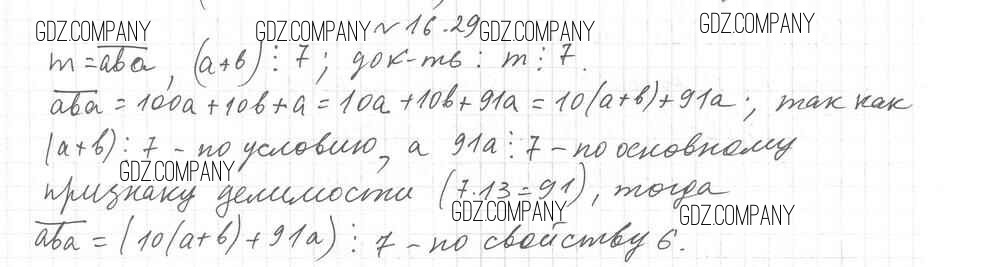 GDZ.COMPANY GDZ.COMPANY №16.29 GDZ.COMPANY GDZ.COMPANY
m = \overline{aba}, (a+b) ⋮ 7; док-ть: m ⋮ 7.
\overline{aba} = 100a + 10b + a = 10a + 10b + 91a = 10(a+b) + 91a; так как
(a+b) ⋮ 7 – по условию, а 91a ⋮ 7 – по основному
GDZ.COMPANY
признаку делимости (7·13=91), тогда
GDZ.COMPANY GDZ.COMPANY
\overline{aba} = (10(a+b) + 91a) ⋮ 7 – по свойству 6.